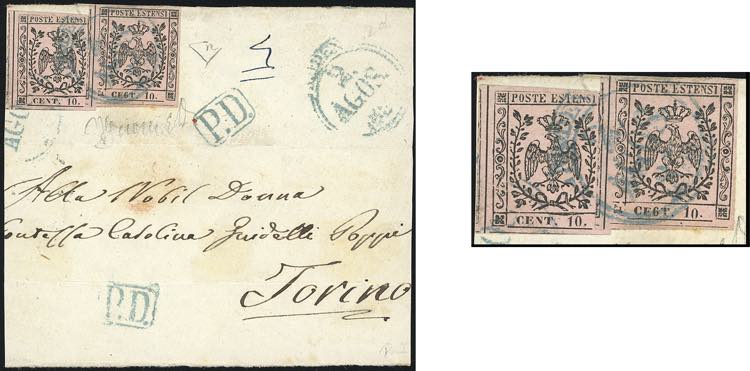 POSTE ESTENSI
CENT. 10.
POSTE ESTENSI
CE6T. 10.
AGO
P.D.
2
AGOS
Alla Nobil Donna
Contessa Carolina Guidelli Poppi
Torino
P.D.
POSTE ESTENSI
CENT. 10.
POSTE ESTENSI
CE6T. 10.